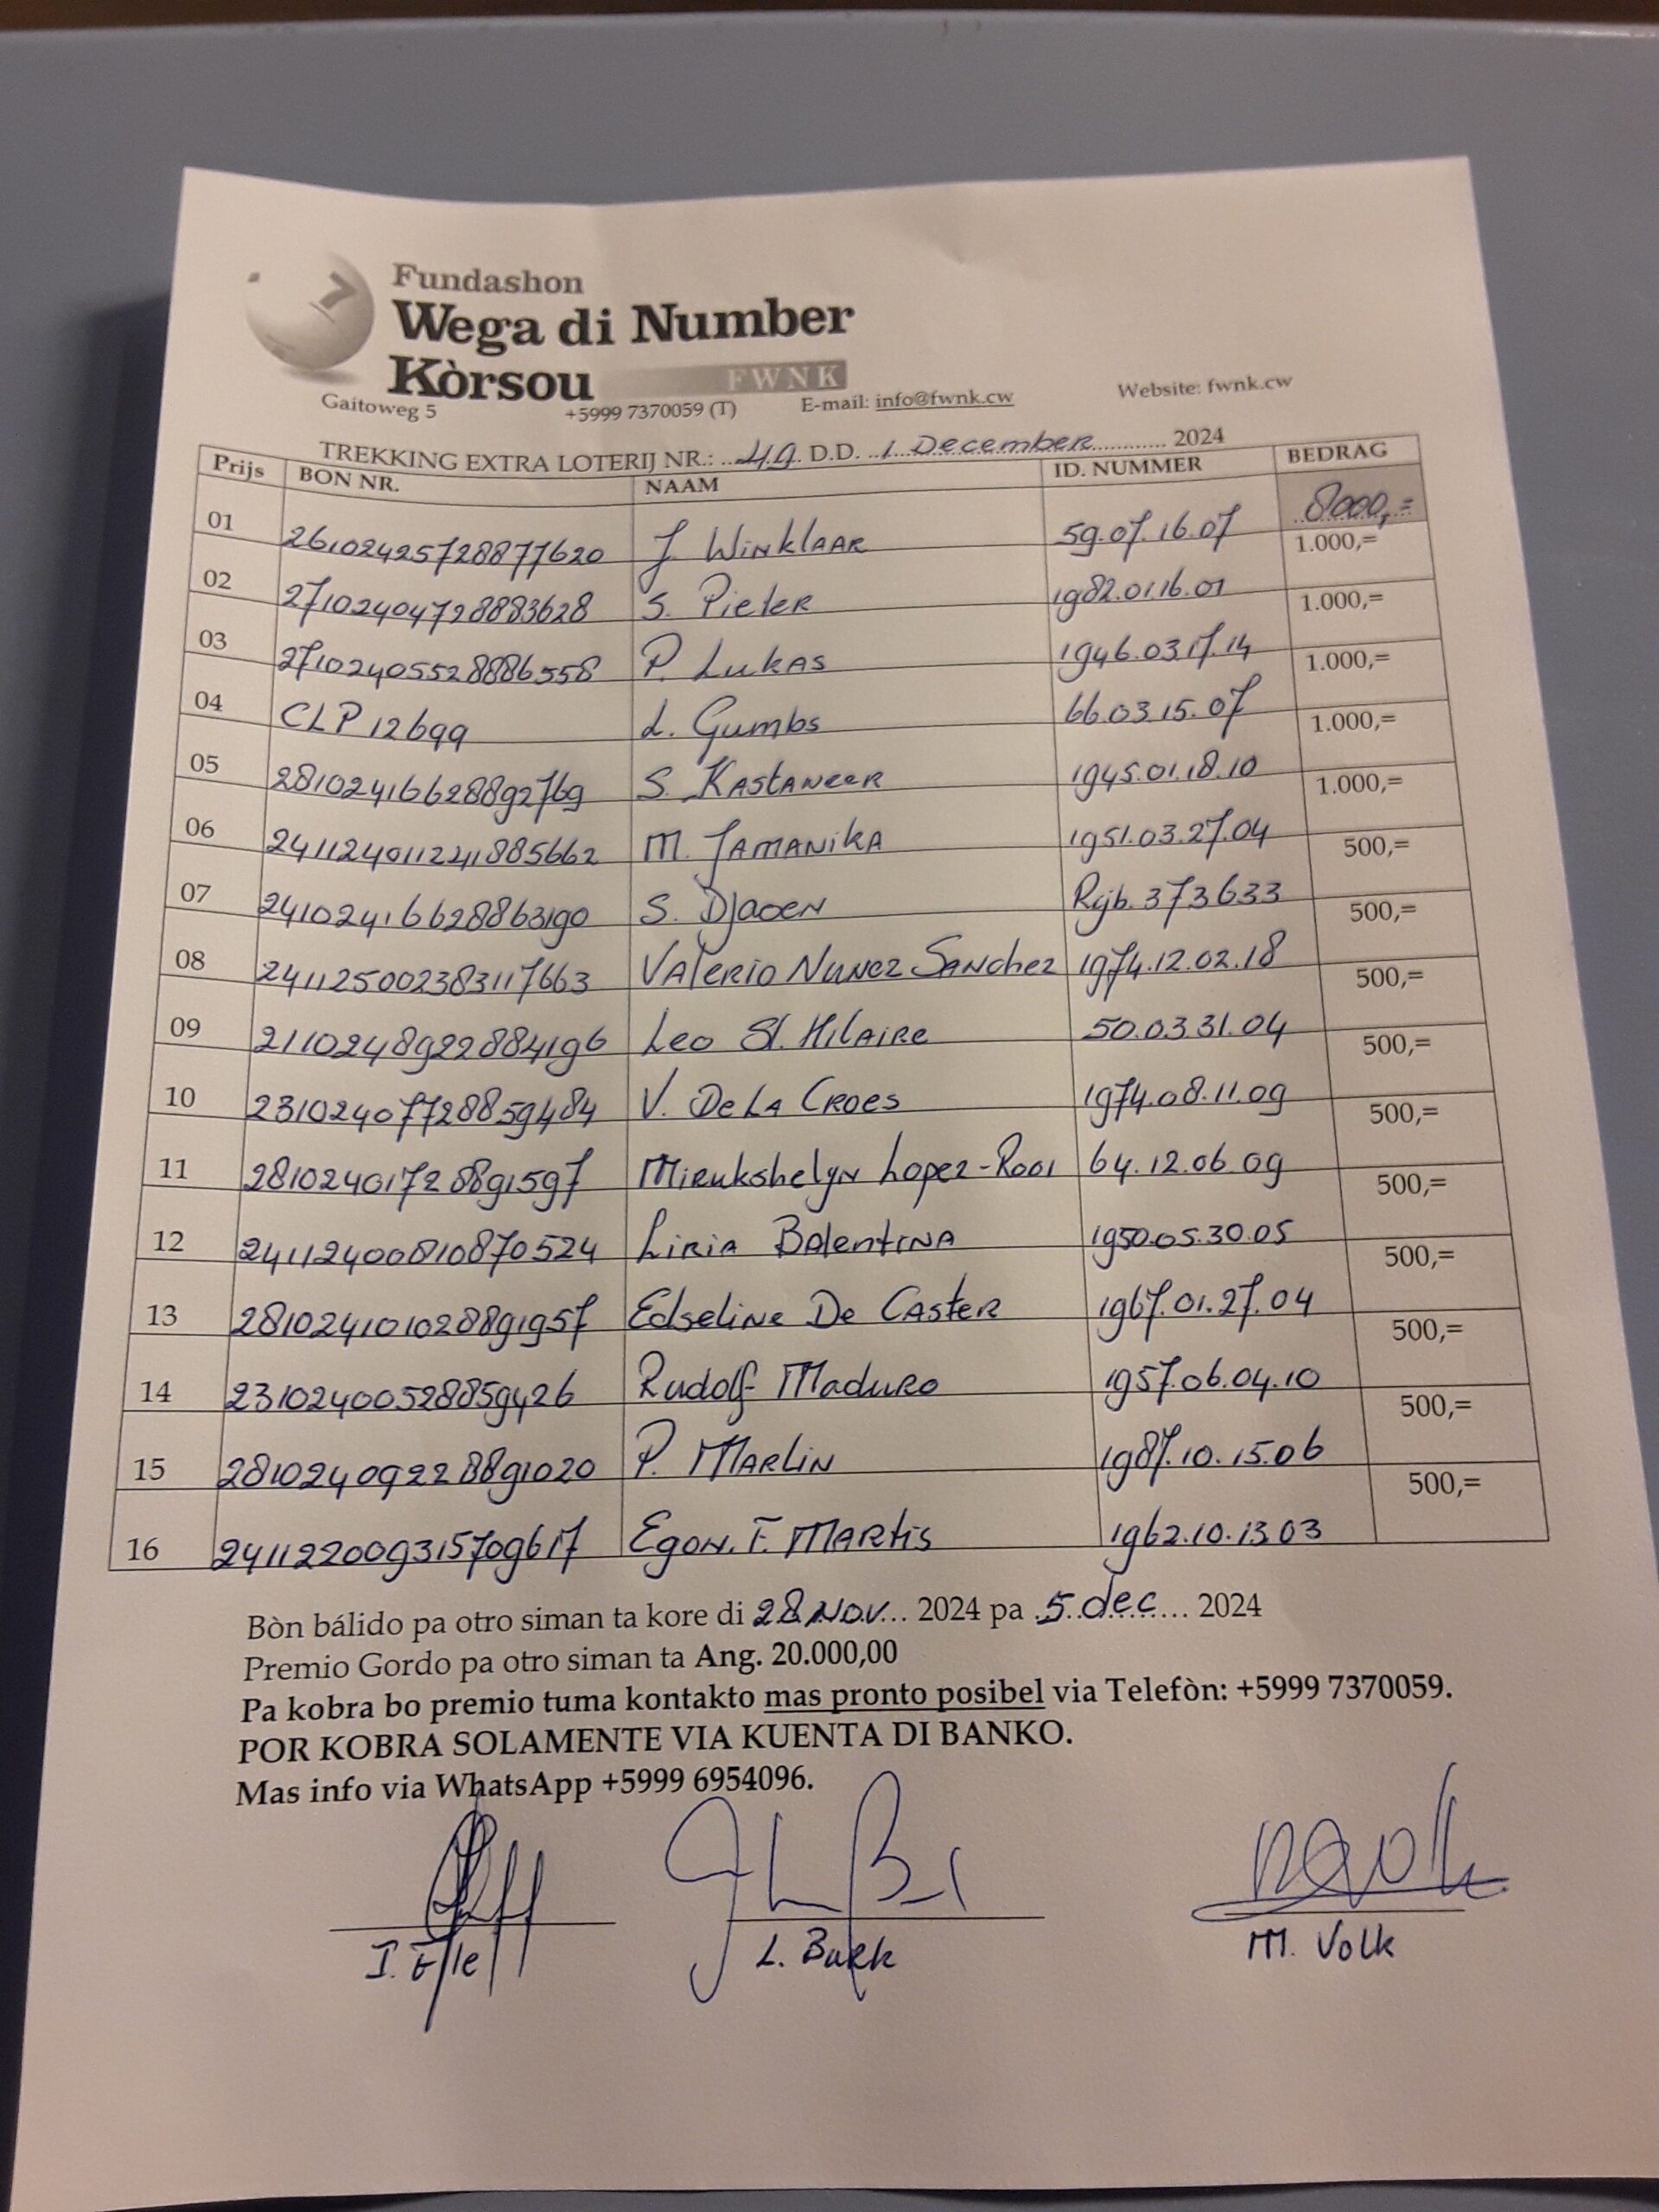 Fundashon
Wega di Number
Kòrsou
FWNK
Gaitoweg 5 +5999 7370059 (T) E-mail: info@fwnk.cw Website: fwnk.cw
TREKKING EXTRA LOTERIJ NR.: ..49. D.D. ..1. December............ 2024
Prijs BON NR. NAAM ID. NUMMER BEDRAG
01 26102425728877620 J. Winklaar 59.07.16.07 8000,=
02 27102404728883628 S. Pieter 1982.01.16.01 1.000,=
03 27102405528886558 P. Lukas 1946.03.17.14 1.000,=
04 CLP 12699 L. Gumbs 66.03.15.07 1.000,=
05 28102416628892769 S. Kastaneer 1945.01.18.10 1.000,=
06 2411240112241885662 M. Jamanika 1951.03.27.04 1.000,=
07 24102416628863190 S. Djaoen Rijb. 373633 500,=
08 241125002383117663 Valerio Nunez Sanchez 1974.12.02.18 500,=
09 2110248922884196 Leo St. Hilaire 50.03.31.04 500,=
10 23102407728859484 V. De La Croes 1974.08.11.09 500,=
11 28102401728891597 Mirukshelyn Lopez-Rooi 64.12.06.09 500,=
12 24112400810870524 Liria Balentina 1950.05.30.05 500,=
13 281024101028891957 Edseline De Caster 1967.01.27.04 500,=
14 23102400528859426 Rudolf Maduro 1957.06.04.10 500,=
15 28102409228891020 P. Marlin 1987.10.15.06 500,=
16 241122009315709617 Egon. F. Martis 1962.10.13.03 500,=
Bòn bálido pa otro siman ta kore di 28 Nov... 2024 pa .5.dec........ 2024
Premio Gordo pa otro siman ta Ang. 20.000,00
Pa kobra bo premio tuma kontakto mas pronto posibel via Telefòn: +5999 7370059.
POR KOBRA SOLAMENTE VIA KUENTA DI BANKO.
Mas info via WhatsApp +5999 6954096.
L. Burk M. Volk